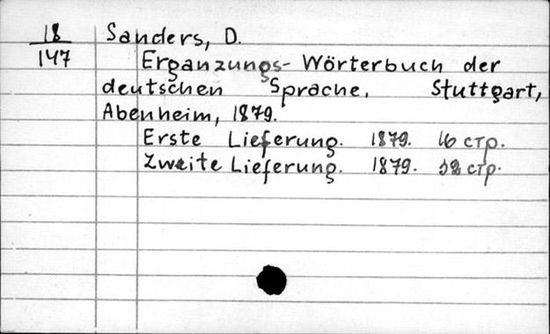 18 Sanders, D.
147 Ergänzungs-Wörterbuch der
deutschen Sprache. Stuttgart,
Abenheim, 1879.
Erste Lieferung. 1879. 16 стр.
Zweite Lieferung. 1879. стр.